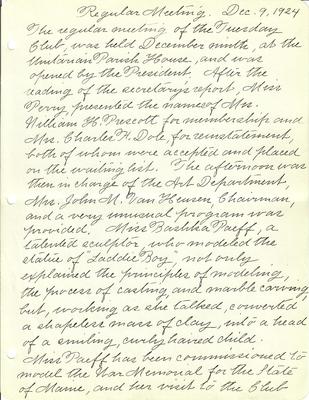 Regular Meeting. Dec. 9, 1924
The regular meeting of the Tuesday
Club, was held December ninth, at the
Unitarian Parish House, and was
opened by the President. After the
reading of the secretary's report, Miss
Perry presented the name of Mrs.
William H. Prescott for membership and
Mrs. Charles F. Dole, for reinstatement,
both of whom were accepted and placed
on the waiting list. The afternoon was
then in charge of the Art Department,
Mrs. John M. Van Heusen, Chairman,
and a very unusual program was
provided. Miss Bashka Paeff, a
talented sculptor, who modeled the
statue of "Laddie Boy", not only
explained the principles of modeling,
the process of casting, and marble carving,
but, working as she talked, converted
a shapeless mass of clay, into a head
of a smiling, curly haired child.
Miss Paeff has been commissioned to
model the War Memorial for the State
of Maine, and her visit to the Club